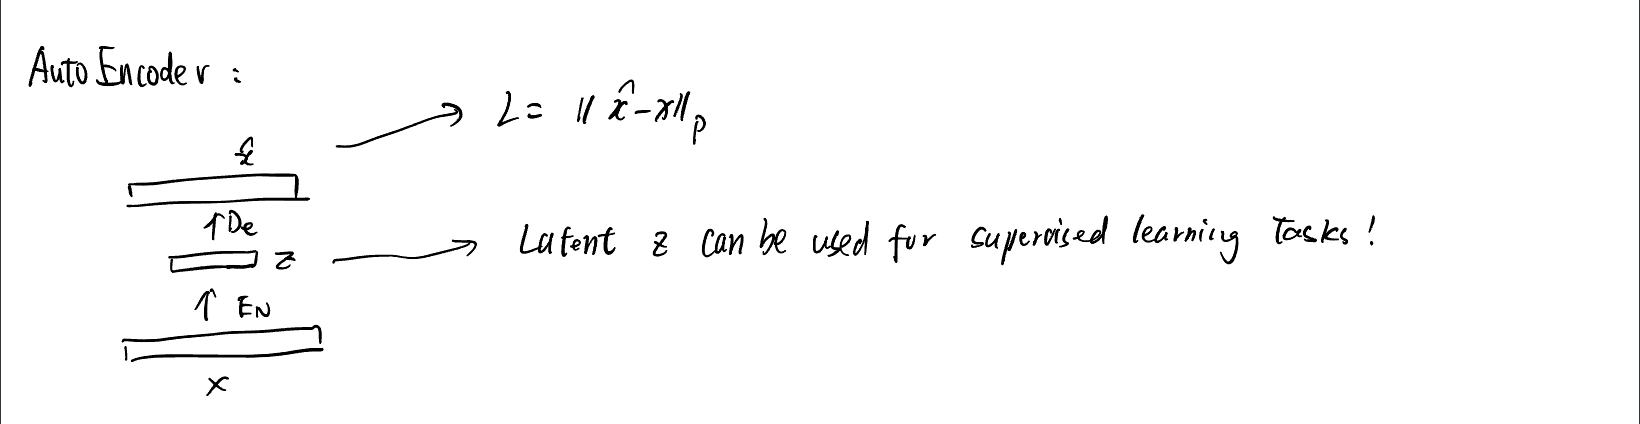 Auto Encoder :
L = || x̂ - x ||_p
x̂
↑ De
z
Latent z can be used for supervised learning Tasks !
↑ EN
x